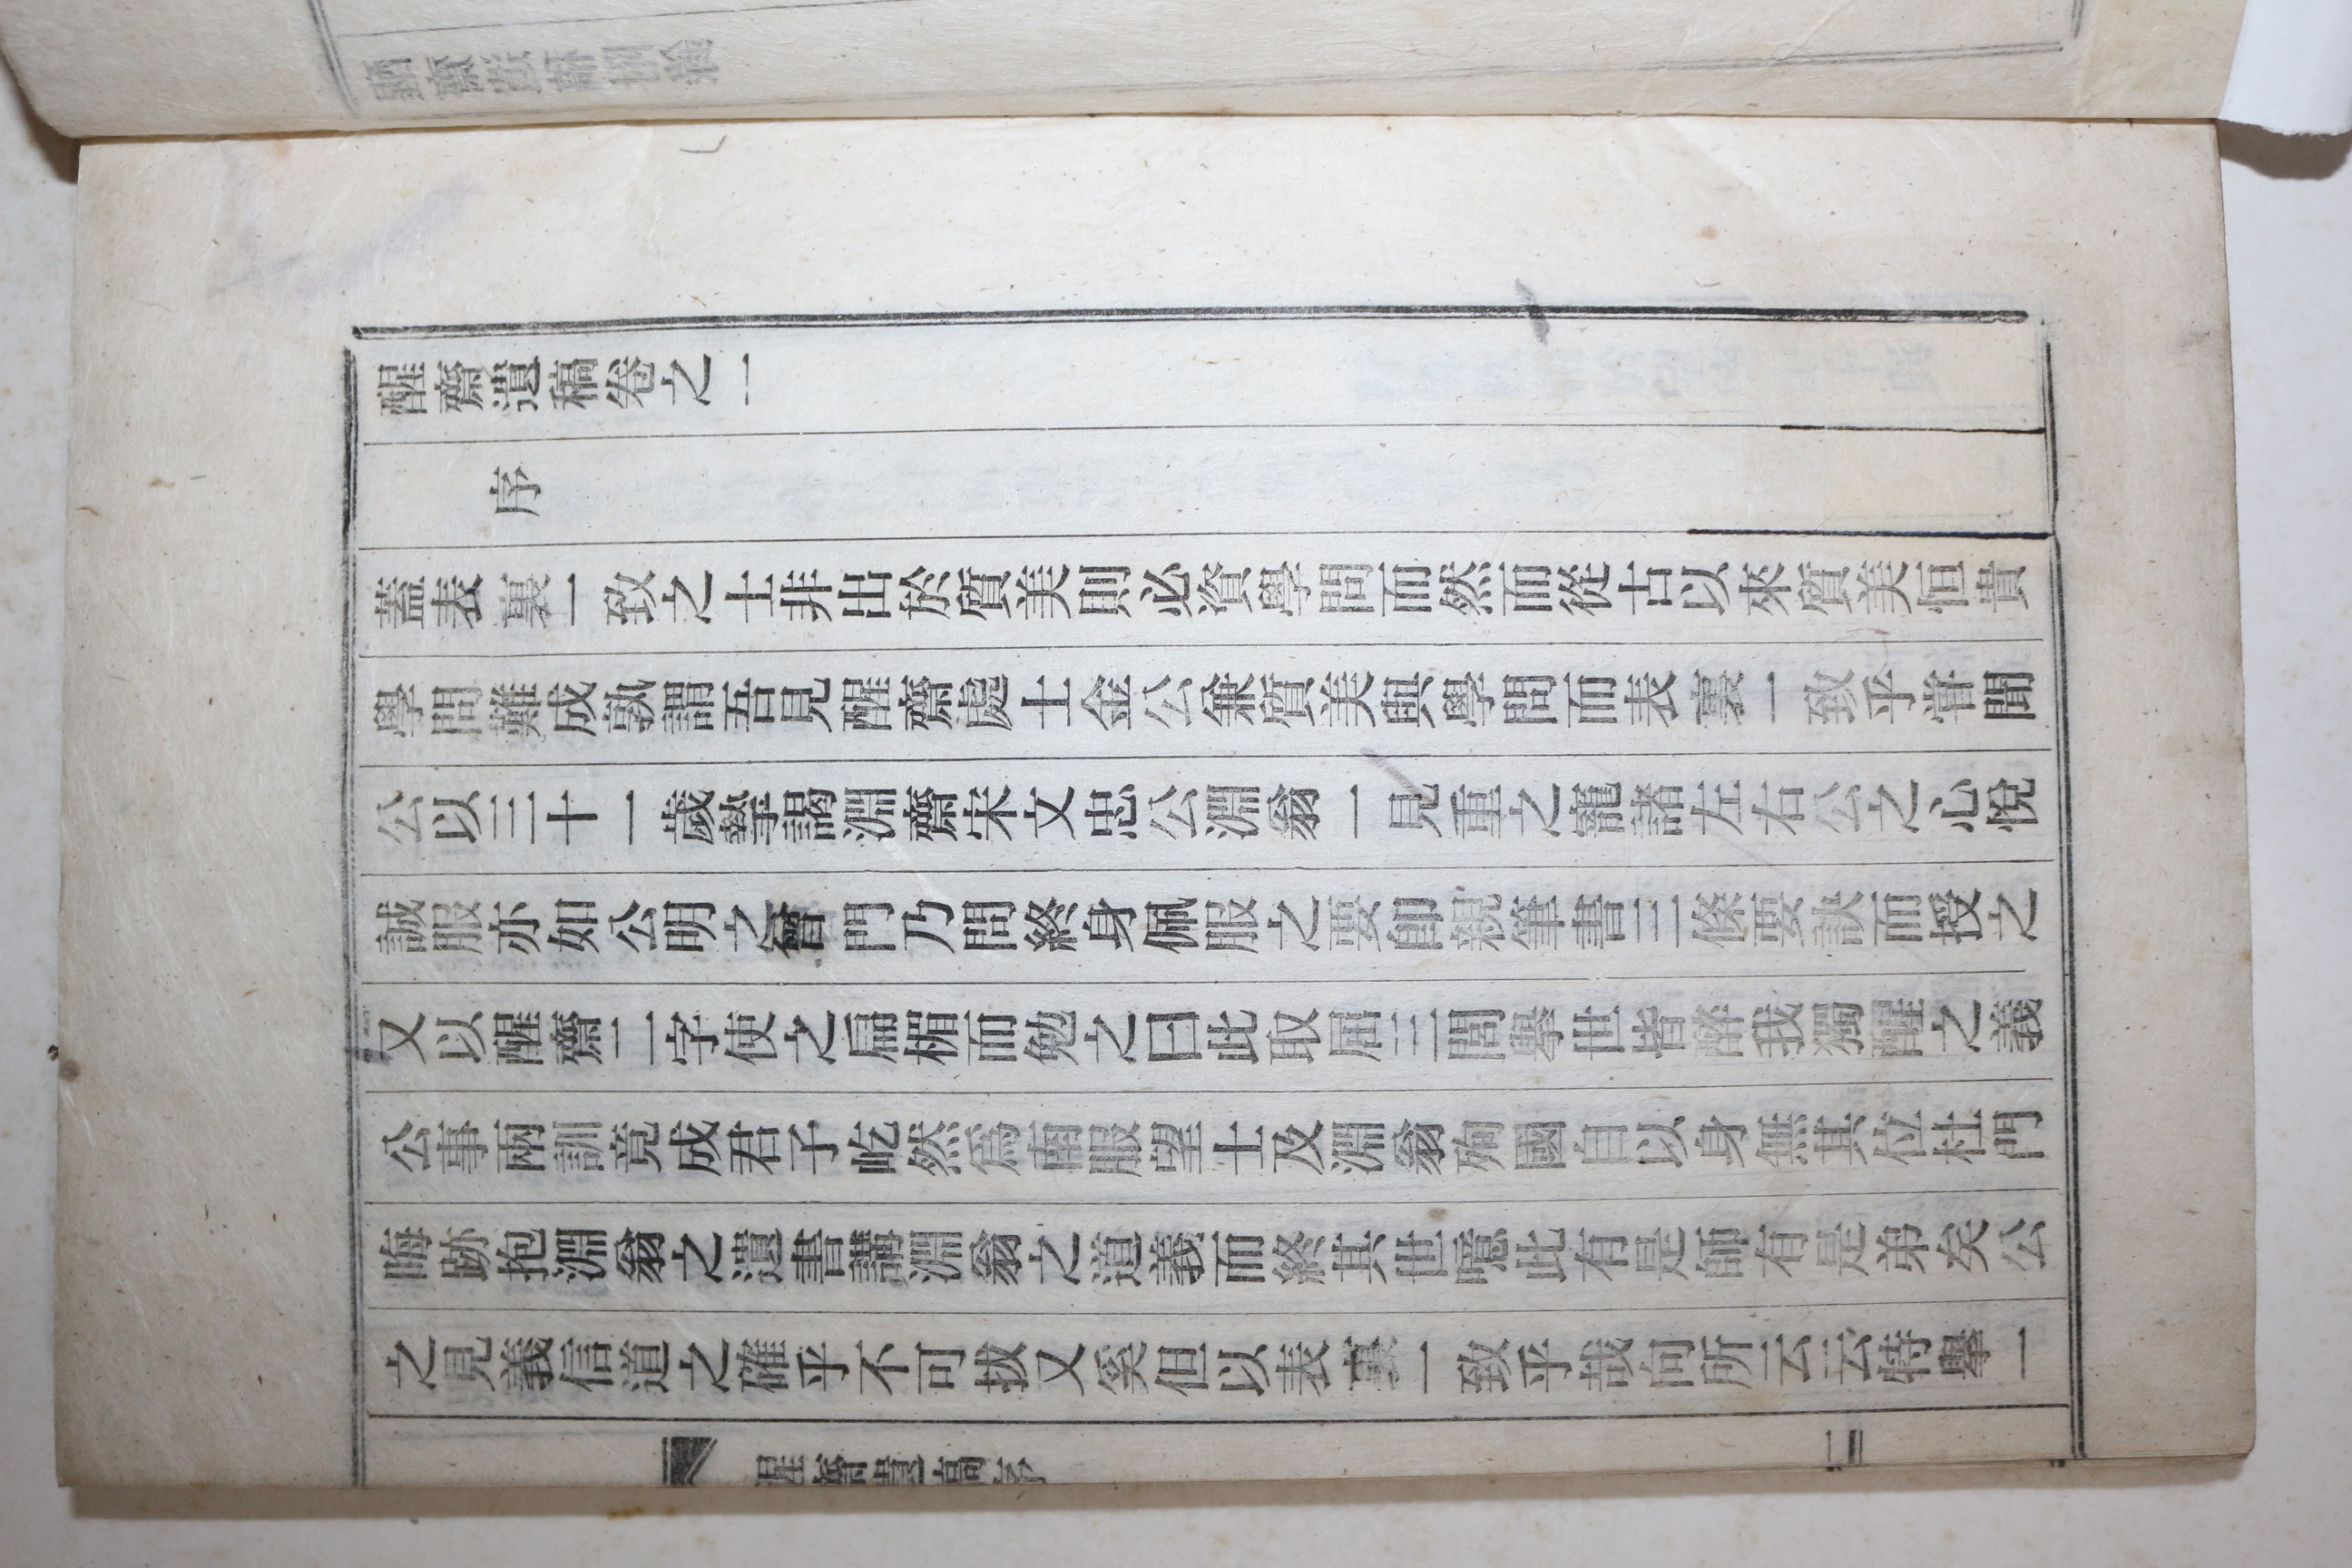 醒齋遺稿卷之一
序
蓋表裏一致之士非出於質美則必資學問而然而從古以來質美恒貴
學問難成孰謂吾見醒齋處士金公兼質美與學問而表裏一致乎嘗聞
公以三十一歲摯謁淵齋宋文忠公淵翁一見重之寵諸左右公之心悅
誠服亦如公明之曾門乃問終身佩服之要卽親筆書三條要訣而授之
又以醒齋二字使之扁楣而勉之曰此取屈三閭擧世皆醉我獨醒之義
公事兩訓竟成君子屹然爲南服望士及淵翁殉國自以身無其位杜門
晦跡抱淵翁之遺書講淵翁之道義而終其世噫此有是師有是弟矣公
之見義信道之確乎不可拔又奚但以表裏一致乎哉向所云云特擧一
醒齋遺稿序
二
醒齋遺稿附錄